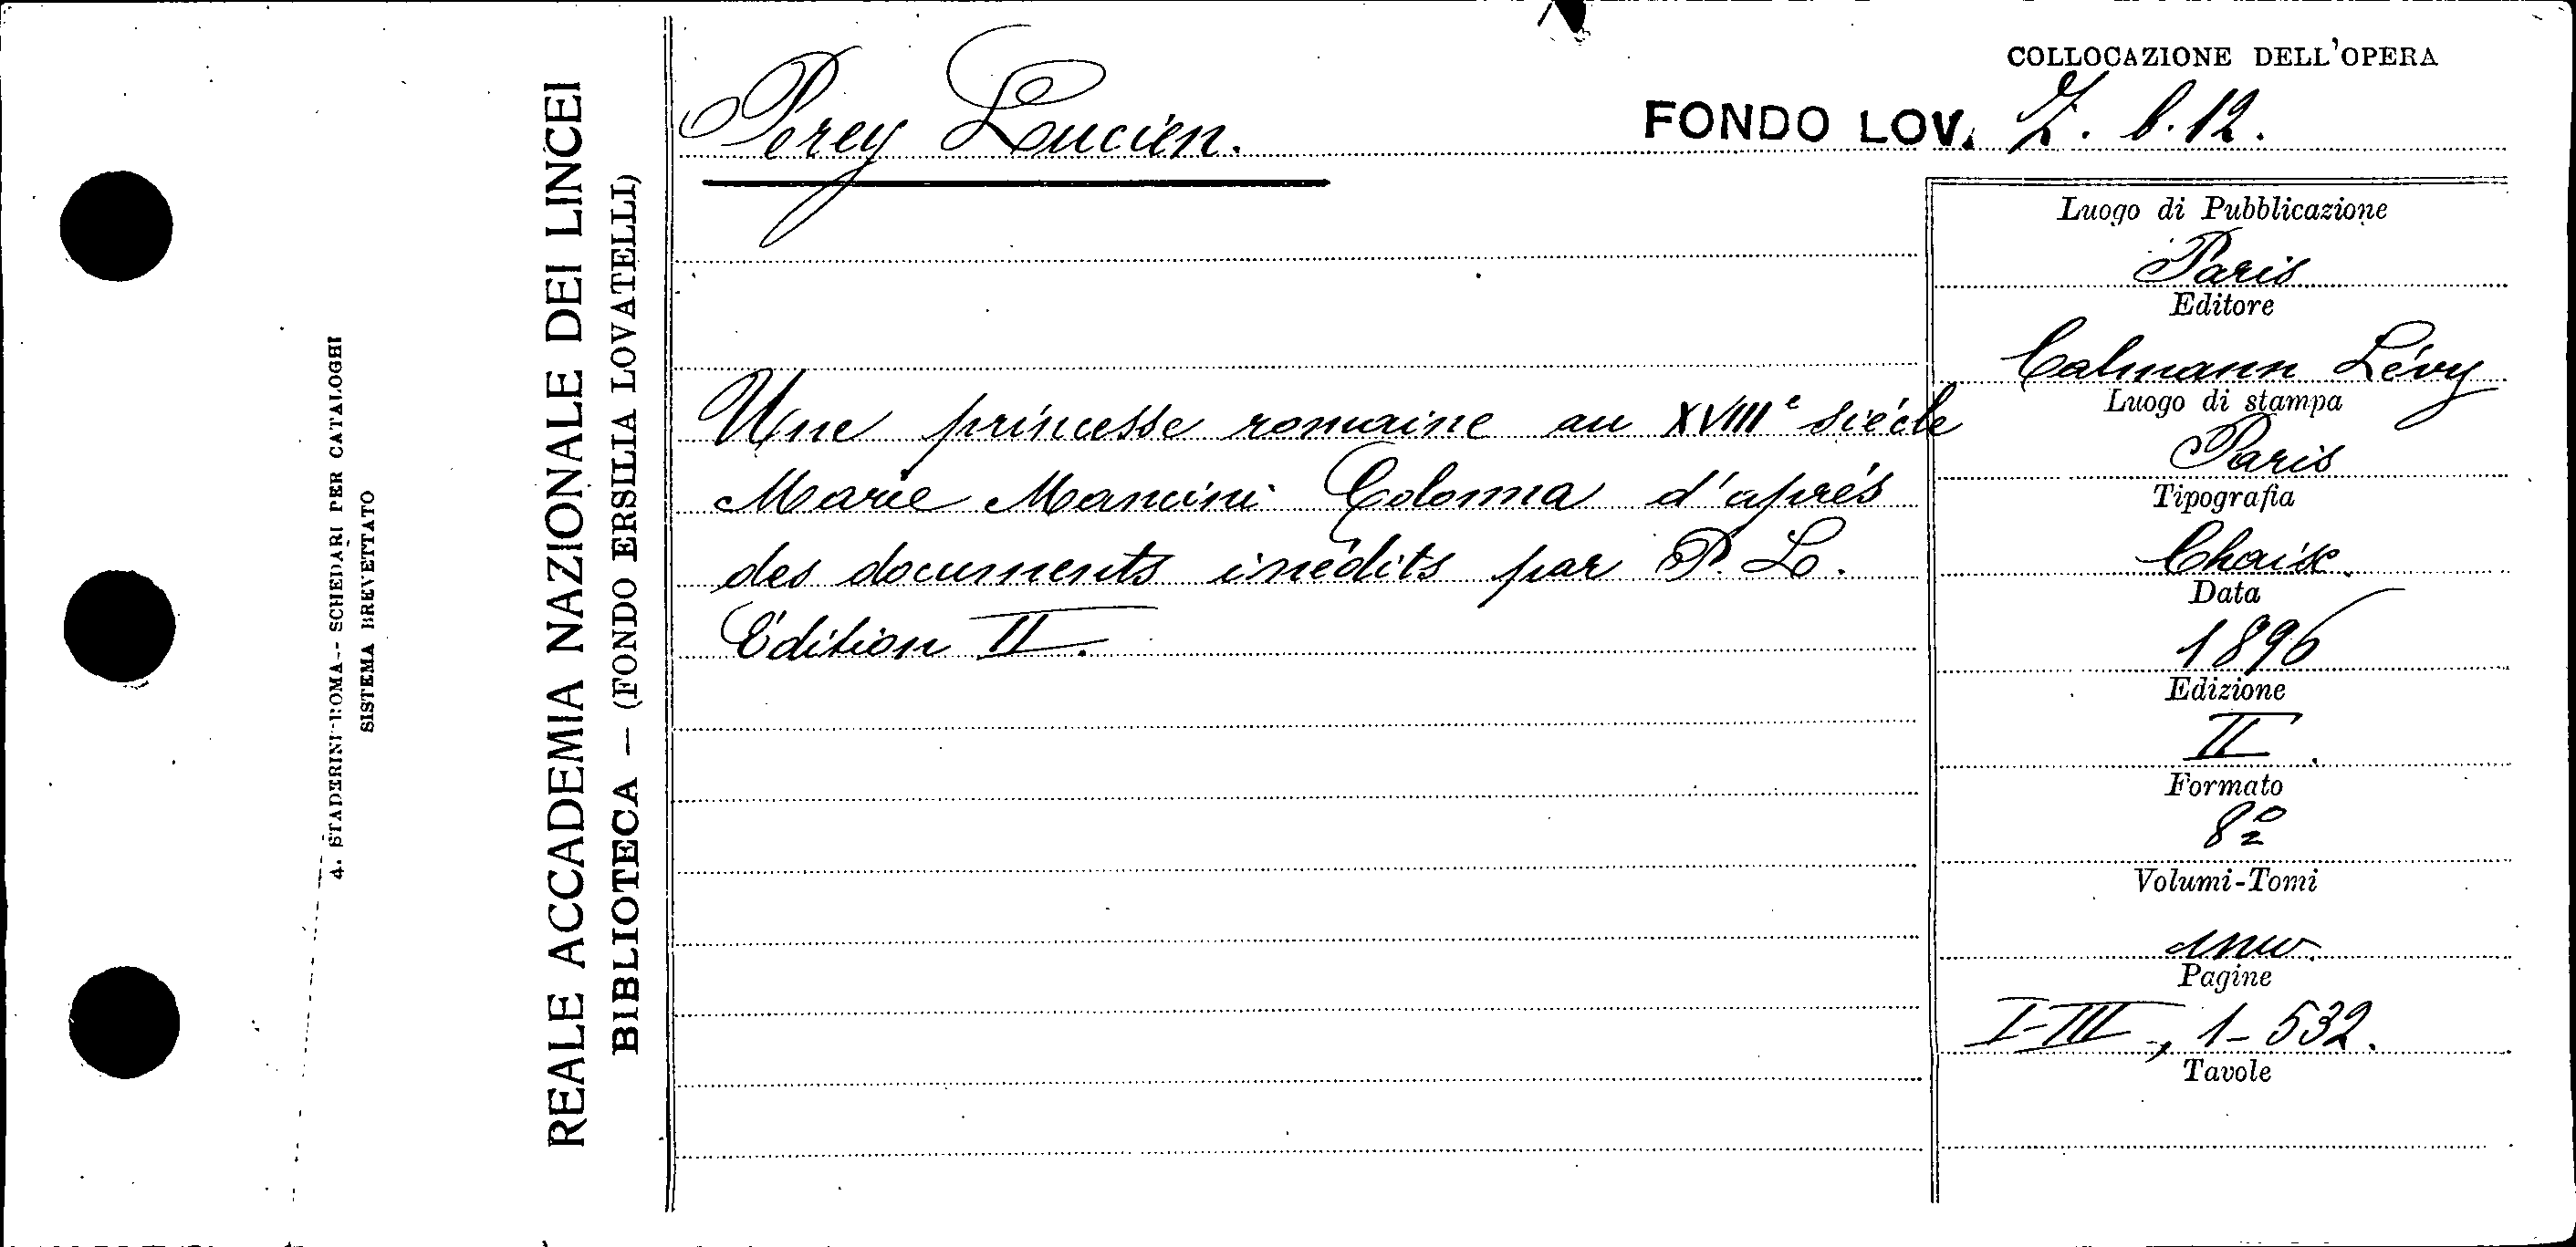 COLLOCAZIONE DELL'OPERA
Perey Lucien.
FONDO LOV. Z. b. 12.
REALE ACCADEMIA NAZIONALE DEI LINCEI
BIBLIOTECA — (FONDO ERSILIA LOVATELLI)
4. STADERINI-ROMA-- SCHEDARI PER CATALOGHI
SISTEMA BREVETTATO
Une princesse romaine au XVIIIe siécle
Marie Mancini Colonna d'aprés
des documents inédits par P. L.
Édition II.
Luogo di Pubblicazione
Paris
Editore
Calmann Lévy
Luogo di stampa
Paris
Tipografia
Chaix.
Data
1896
Edizione
II.
Formato
8º
Volumi-Tomi
uno.
Pagine
I-III, 1-532.
Tavole